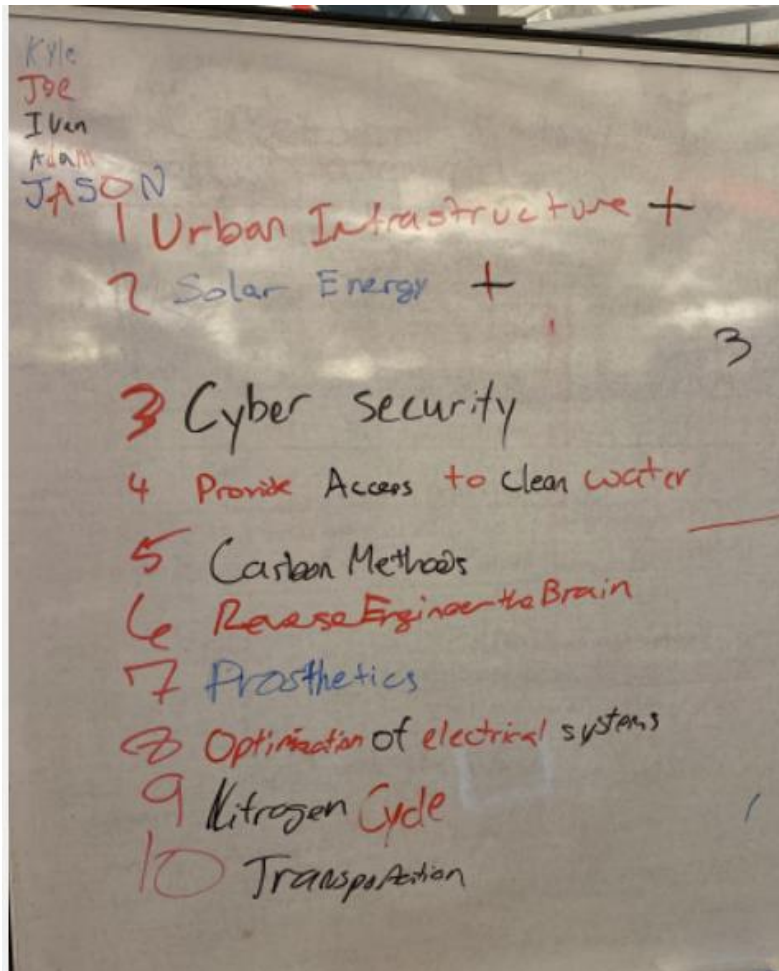 Kyle
Joe
Ivan
Adam
JASON
1 Urban Infrastructure +
2 Solar Energy +
3
3 Cyber security
4 Provide Access to clean water
5 Carbon Methods
6 Reverse Engineer the Brain
7 Prosthetics
8 Optimization of electrical systems
9 Nitrogen Cycle
10 Transportation